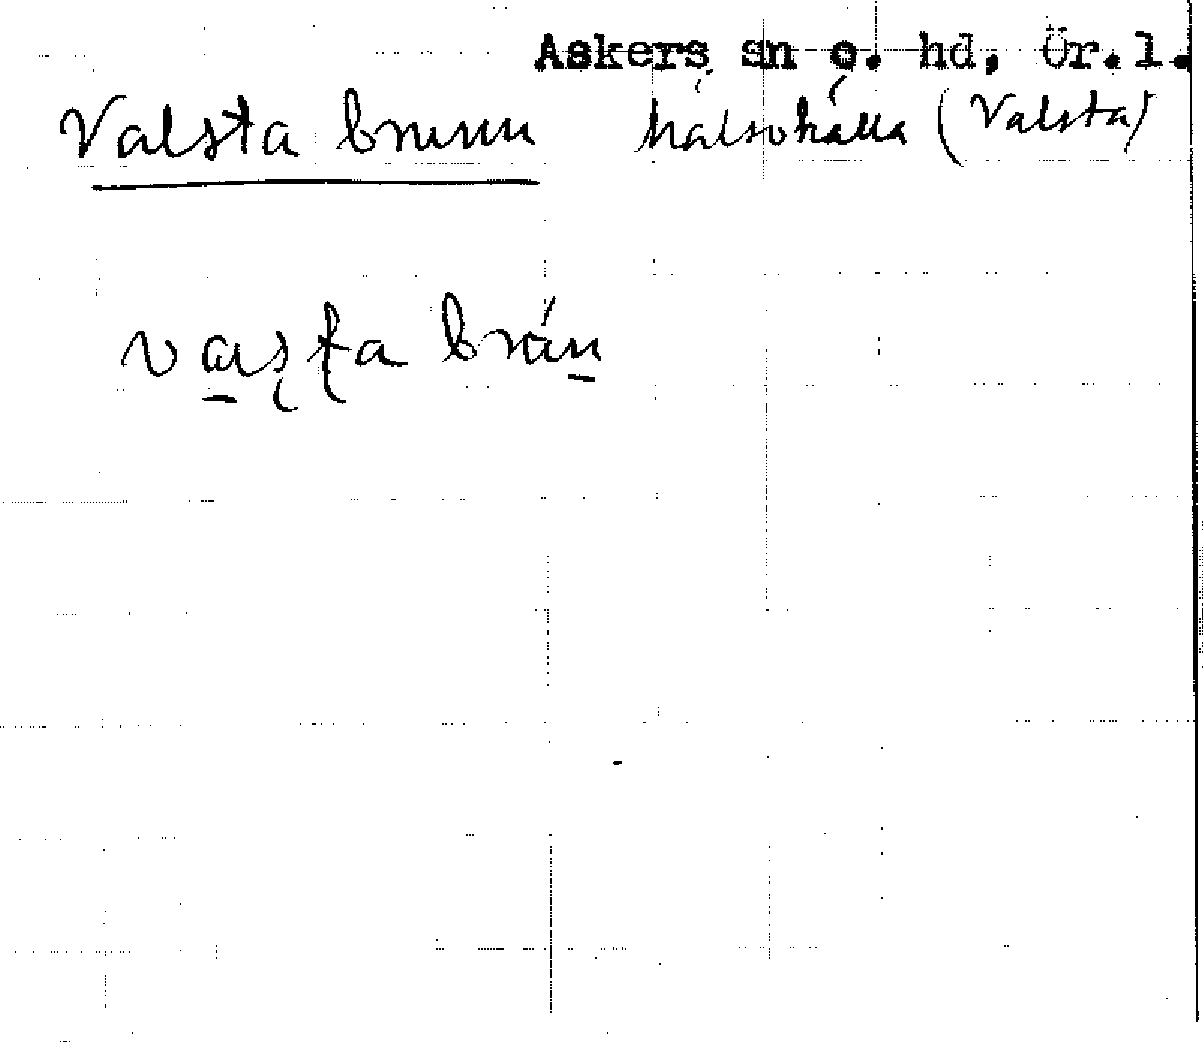 Askers sn o. hd, Ör.l.
Valsta brunn hälsokälla (Valsta)